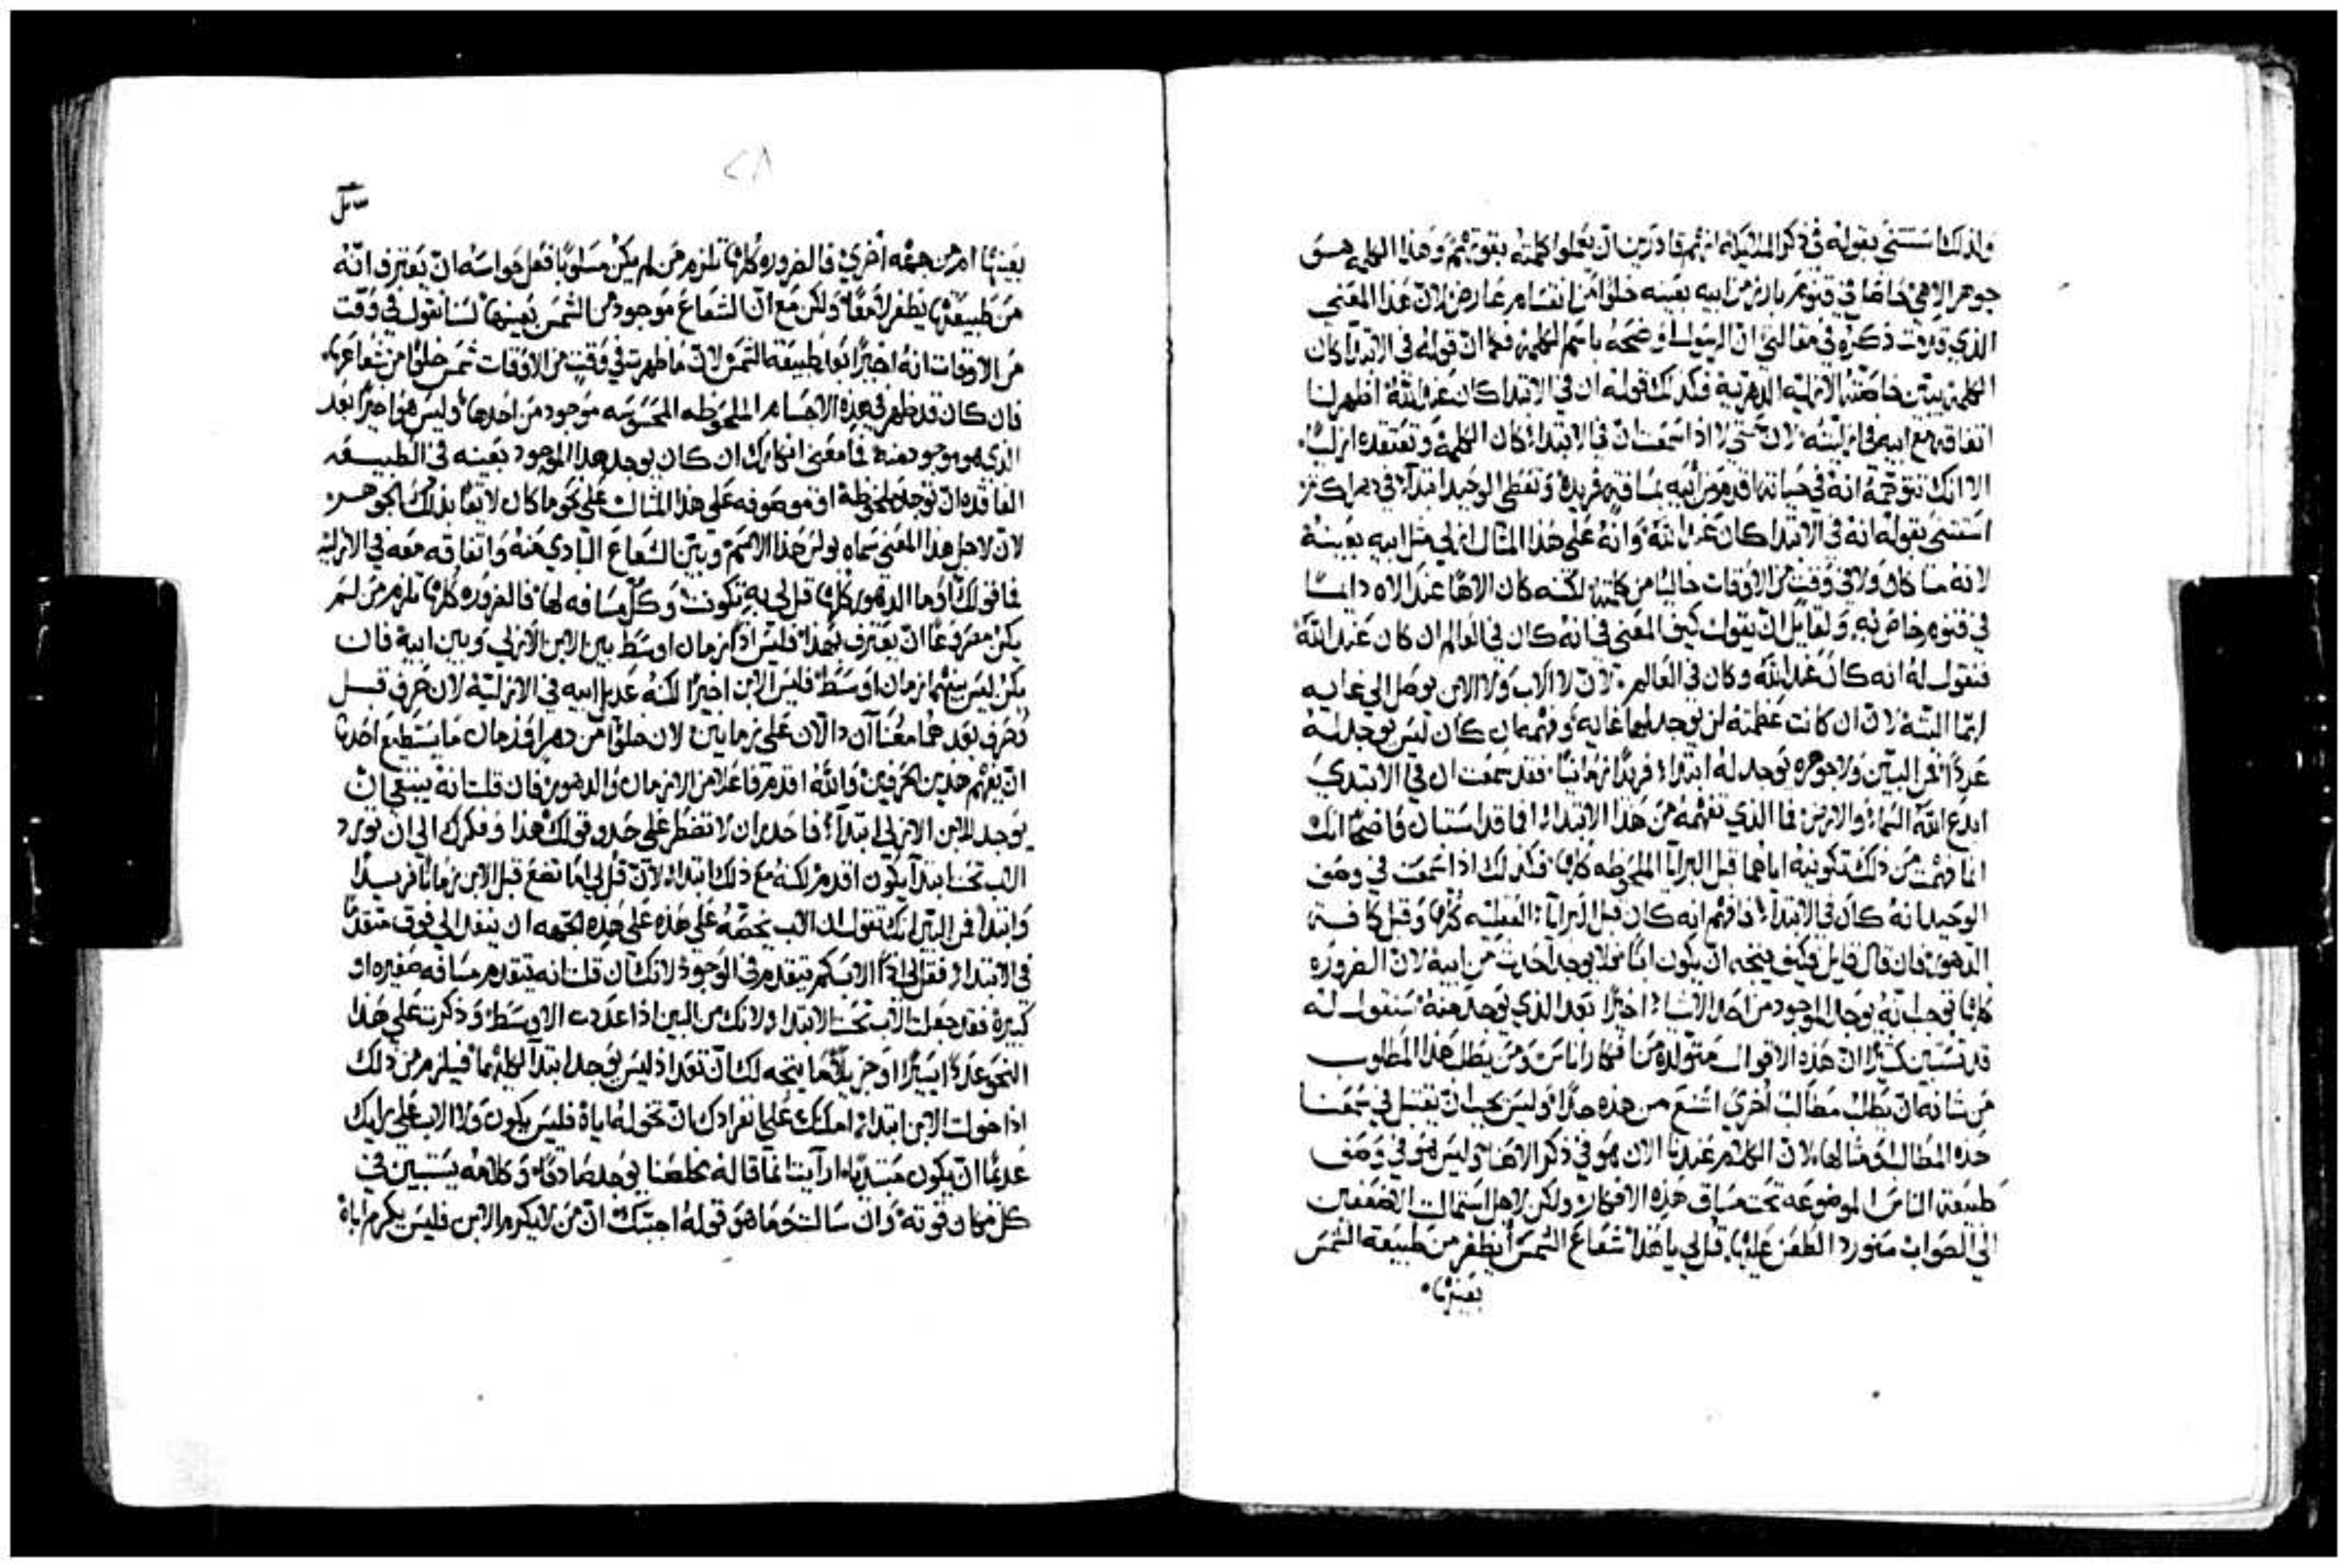 ولذلك استثنى بقوله في ذكر الملايكه انهم قادرين ان يعملوا كلمته بقوتهم وهذا الكلمه هو
جوهر الاهي خاصا في قنوم بارز من ابيه بعينه خلوا من انقسام عارض لان هذا المعنى
الذي قدمت ذكره في مقالتي ان الرسول اوضحه باسم الكلمه فكما ان قوله في الابتدا كان
الكلمه يبين خاصته الازليه الدهريه فكذلك قوله ان في الابتدا كان عند الله اظهر لنا
اتفاقه مع ابيه في ازليته لان حتى لا اذا سمعت ان في الابتدا كان الكلمه وتعتقده ازليا
الا انك تتوهمه انه في حياته اقدم من ابيه بمسافه فريده وتعطي الوحيد ابتدآ في دهر اكثر
استثنى بقوله انه في الابتدا كان عند الله وانه على هذا المثال ازلي مثل ابيه بعينه
لانه ما كان ولا في وقت من الاوقات خاليا من كلمته لكنه كان الاها عند الاه دايما
في قنوم خاص به ولقايل ان يقول كيف المعنى في انه كان في العالم ان كان عند الله
فنقول له انه كان عند الله وكان في العالم لان لا الاب ولا الابن يوصل الى غايه
البته لان ان كانت عظمته لن يوجد لها غايه وفهمه ان كان ليس يوجد له
عددا فمن البين ولا جوهره يوجد له ابتدا فريدا زمانيا فقد سمعت ان في الابتدي
ابدع الله السماء والارض فما الذي تفهمه من هذا الابتدا افما قد استبان واضحا انك
انما فهمت من ذلك تكوينه اياهما قبل البرايا الملحوظه كلها فكذلك اذا سمعت في وصف
الوحيد انه كان في الابتدا فافهم انه كان قبل البرايا العقليه كلها وقبل كافة
الدهور فان قال قايل فكيف يتجه ان يكون ابنا ولا يوجد احدث من ابيه لان الضروره
كلها توجب انه يوجد الموجود من احد الاشيا اخيرا بعد الذي يوجد منه سنقول له
قد تستبين كثيرا ان هذه الاقوال متولده من افكار اناس ومن يطلب هذا المطلوب
من شانه ان يطلب مطالب اخرى اشنع من هذه جدا وليس يجب ان تقتبل في سمعنا
هذه المطالب ومثالها لان الكلام عندنا الان هو في ذكر الاهنا وليس هو في وصف
طبيعة الناس الموضوعه تحت مساق هذه الافكار ولكن لاجل استمالت الاضعفين
الى الصواب سنورد الطعن عليها قل لي يا هذا شعاع الشمس أيظفر من طبيعة الشمس
بعينها
٢٨
بعينها ام من جهه اخرى فالضروره كلها تلزم من لم يكن مسلوبا فعل حواسه ان يعترف انه
من طبيعتها يظفر لامعا ولكن مع ان الشعاع موجود من الشمس بعينها لسنا نقول في وقت
من الاوقات انه اخيرا بعد طبيعة الشمس لان ما ظهرت في وقت من الاوقات شمس خلوا من شعاعها
فان كان قد ظهر في هذه الاجسام الملحوظه المحسوسه موجود من احدها وليس هو اخيرا بعد
الذي هو موجود منه فما معنى انكارك ان كان يوجد هذا الموجود بعينه في الطبيعه
الفاقده ان توجد ملحوظة او موصوفه على هذا المثال على نحو ما كان لايقا بذلك الجوهر
لان لاجل هذا المعنى سماه بولس هذا الاسم وبين الشعاع البادي منه واتفاقه معه في الازليه
فما قولك أوما الدهور كلها قل لي به تكونت وكل مسافه لها فالضروره كلها تلزم من لم
يكن مصروعا ان يعترف بهذا فليس اذا زمان اوسط بين الابن الازلي وبين ابيه فان
يكن ليس بينهما زمان اوسط فليس الابن اخيرا لكنه عديل ابيه في الازليه لان حرف قبل
وحرف بعد هما معنيان دالان على زمانين لان خلوا من دهر او زمان ما يستطيع احدنا
ان يفهم هذين الحرفين والله اقدم فاعلا من الازمان والدهور فان قلت انه ينبغي ان
يوجد للابن الازلي ابتدآ فاحذر ان لا تضطر على حذو قولك هذا وفكرك الى ان تورد
الاب تحت ابتدا يكون اقدم لكنه مع ذلك ابتدا لان قل لي اما تضع قبل الابن زمانا فريدا
وابتدا فمن البين انك تقول ان الاب يخصه على هذه على هذه الجهه ان ينفد الى فوق متقدما
في الابتدا فقل لي اذا الاب كم يتقدم في الوجود لانك ان قلت انه يتقدم مسافه صغيره او
كبيرة فقد جعلت الاب تحت الابتدا ولانك من البين اذا عددت الاوسط وذكرت على هذا
النحو عددا يسيرا او جزيلا فما يتجه لك ان تعد اذ ليس يوجد ابتدآ لكليهما فيلزم من ذلك
اذا خولت الابن ابتدا ما امكنك على انفرادك ان تخوله اياه فليس يكون ولا الاب على رايك
عديما ان يكون مبتديا ارآيت انما قاله مخلصنا يوجد صادقا وكلامه يستبين في
كل مكان قوته وان سالت وما هو قوله اجبتك ان من لا يكرم الابن فليس يكرم اباه